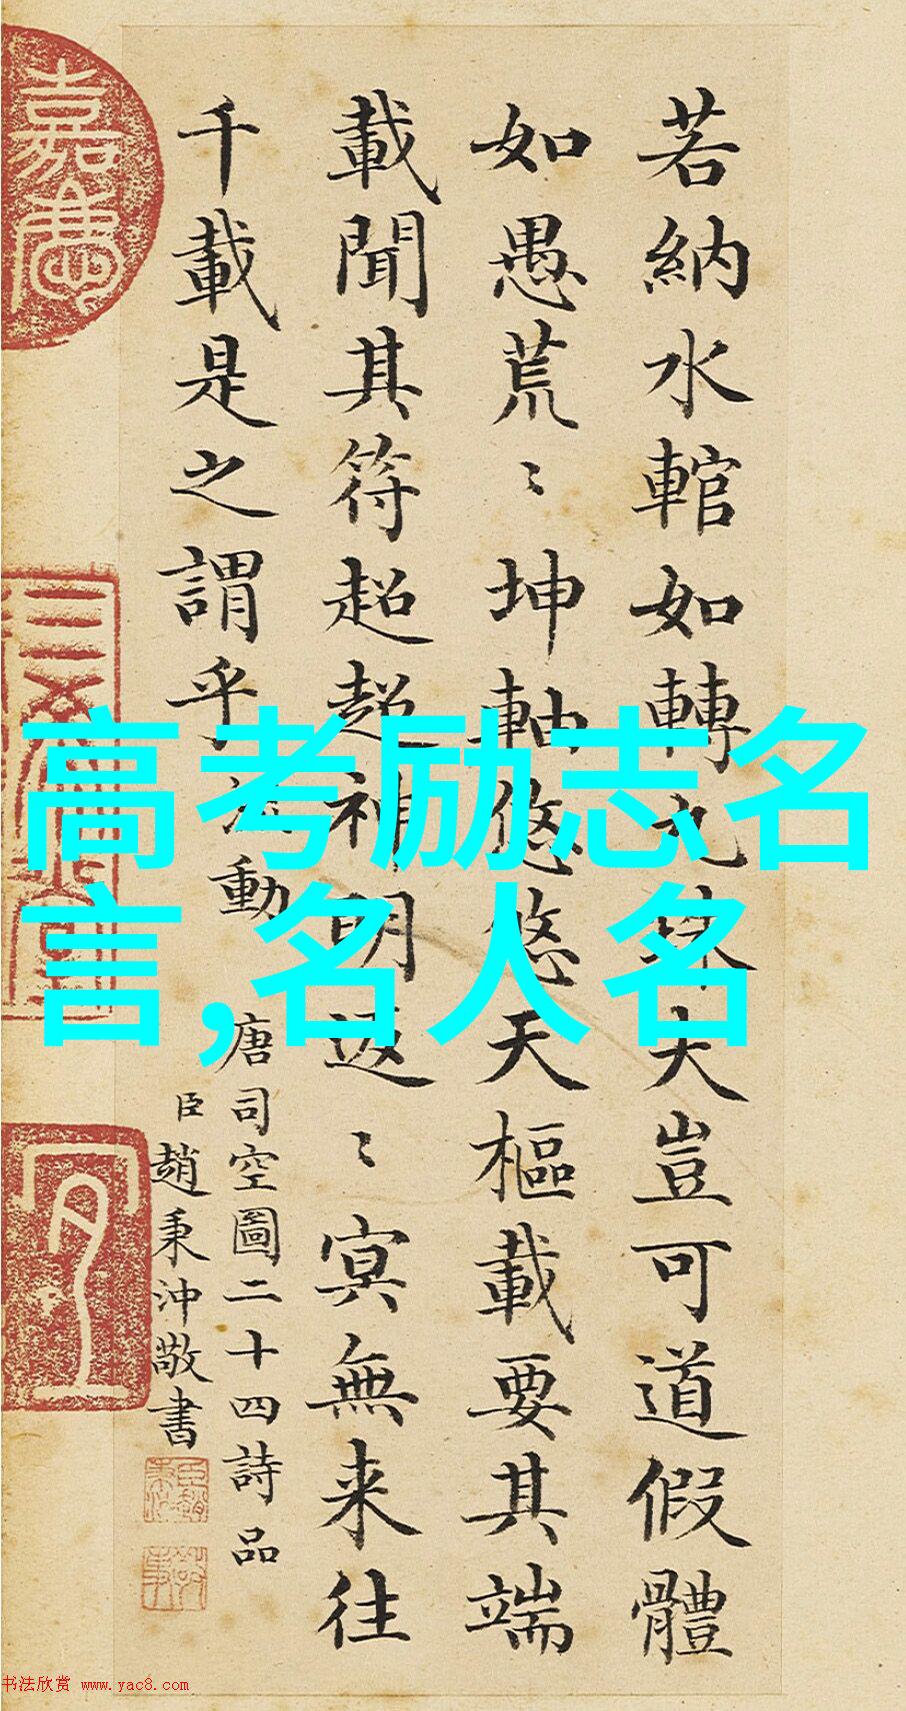 若納水輨如轉丸珠夫豈可道假體
如愚荒〻坤軸悠悠天樞載要其端
載聞其符超超神明返〻冥無来往
千載是之謂乎 流動
唐司空圖二十四詩品
臣趙秉沖敬書
嘉慶
高考励志名
言,名人名
书法欣赏 www.yac8.com